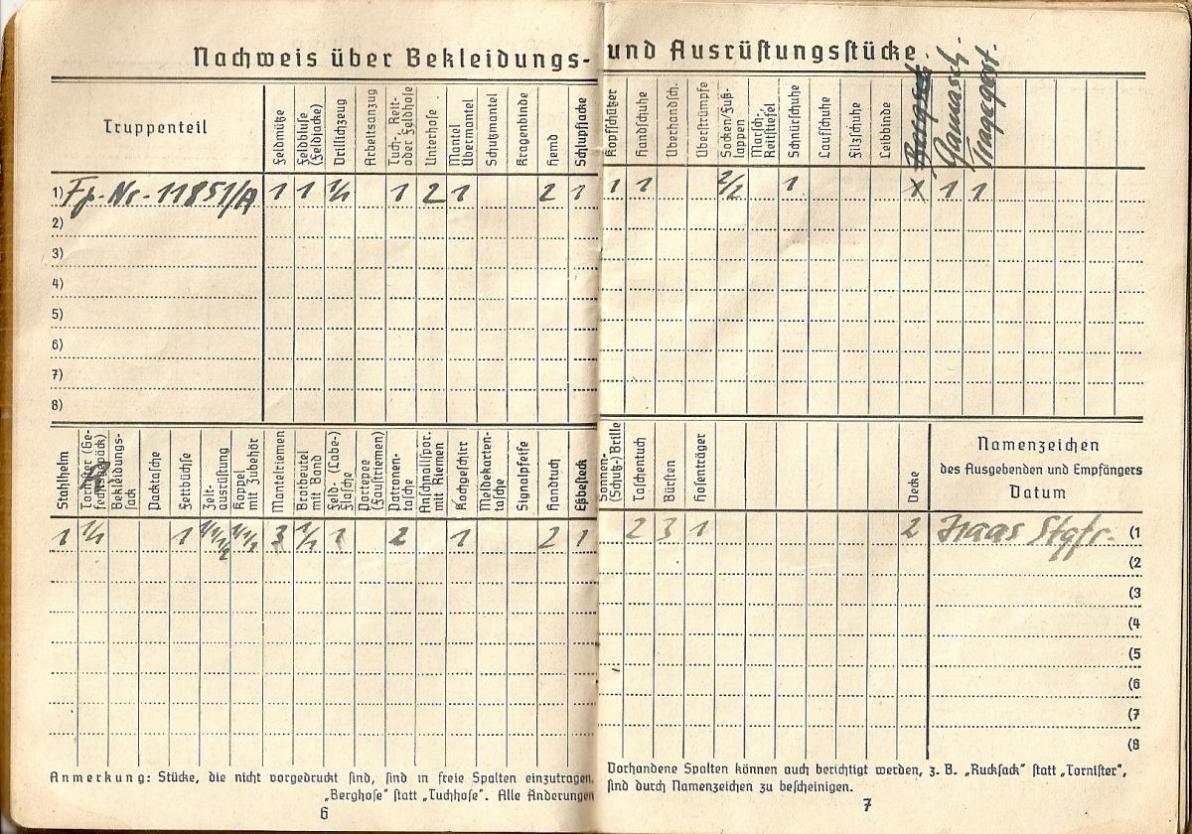 Nachweis über Bekleidungs- und Ausrüstungsstücke.
Truppenteil
Feldmütze
Feldbluse (Feldjacke)
Drillichzeug
Arbeitsanzug
Tuch-, Reit- oder Feldhose
Unterhose
Mantel Übermantel
Schutzmantel
Kragenbinde
Hemd
Schlupfjacke
Kopfschützer
Handschuhe
Überhandsch.
Überstrümpfe
Socken/Fußlappen
Marsch-, Reitstiefel
Schnürschuhe
Laufschuhe
Filzschuhe
Leibbinde
Gamasch.
1) Fp.-Nr.-11851/A 1 1 1/1 1 2 1 2 1 1 1 2/2 1 x 1 1
2)
3)
4)
5)
6)
7)
8)
Stahlhelm
Tornister (Gefechtsgepäck)
R
Bekleidungssack
Packtasche
Fettbüchse
Zeltausrüstung
Koppel mit Zubehör
Mantelriemen
Brotbeutel mit Band
Feld- (Labe-) flasche
Portepee (Faustriemen)
Patronentasche
Anschnallspor. mit Riemen
Kochgeschirr
Meldekartentasche
Signalpfeife
Handtuch
Eßbesteck
Sonnen- (Schutz-) Brille
Taschentuch
Bürsten
Hosenträger
Decke
Namenzeichen
des Ausgebenden und Empfängers
Datum
1 1/1 1 3 1/1 1 2 1 2 1 2 3 1 2 Stgfr. (1
(2
(3
(4
(5
(6
(7
(8
Anmerkung: Stücke, die nicht vorgedruckt sind, sind in freie Spalten einzutragen.
„Berghose" statt „Tuchhose". Alle Änderungen
6
Vorhandene Spalten können auch berichtigt werden, z. B. „Rucksack" statt „Tornister",
sind durch Namenzeichen zu bescheinigen.
7